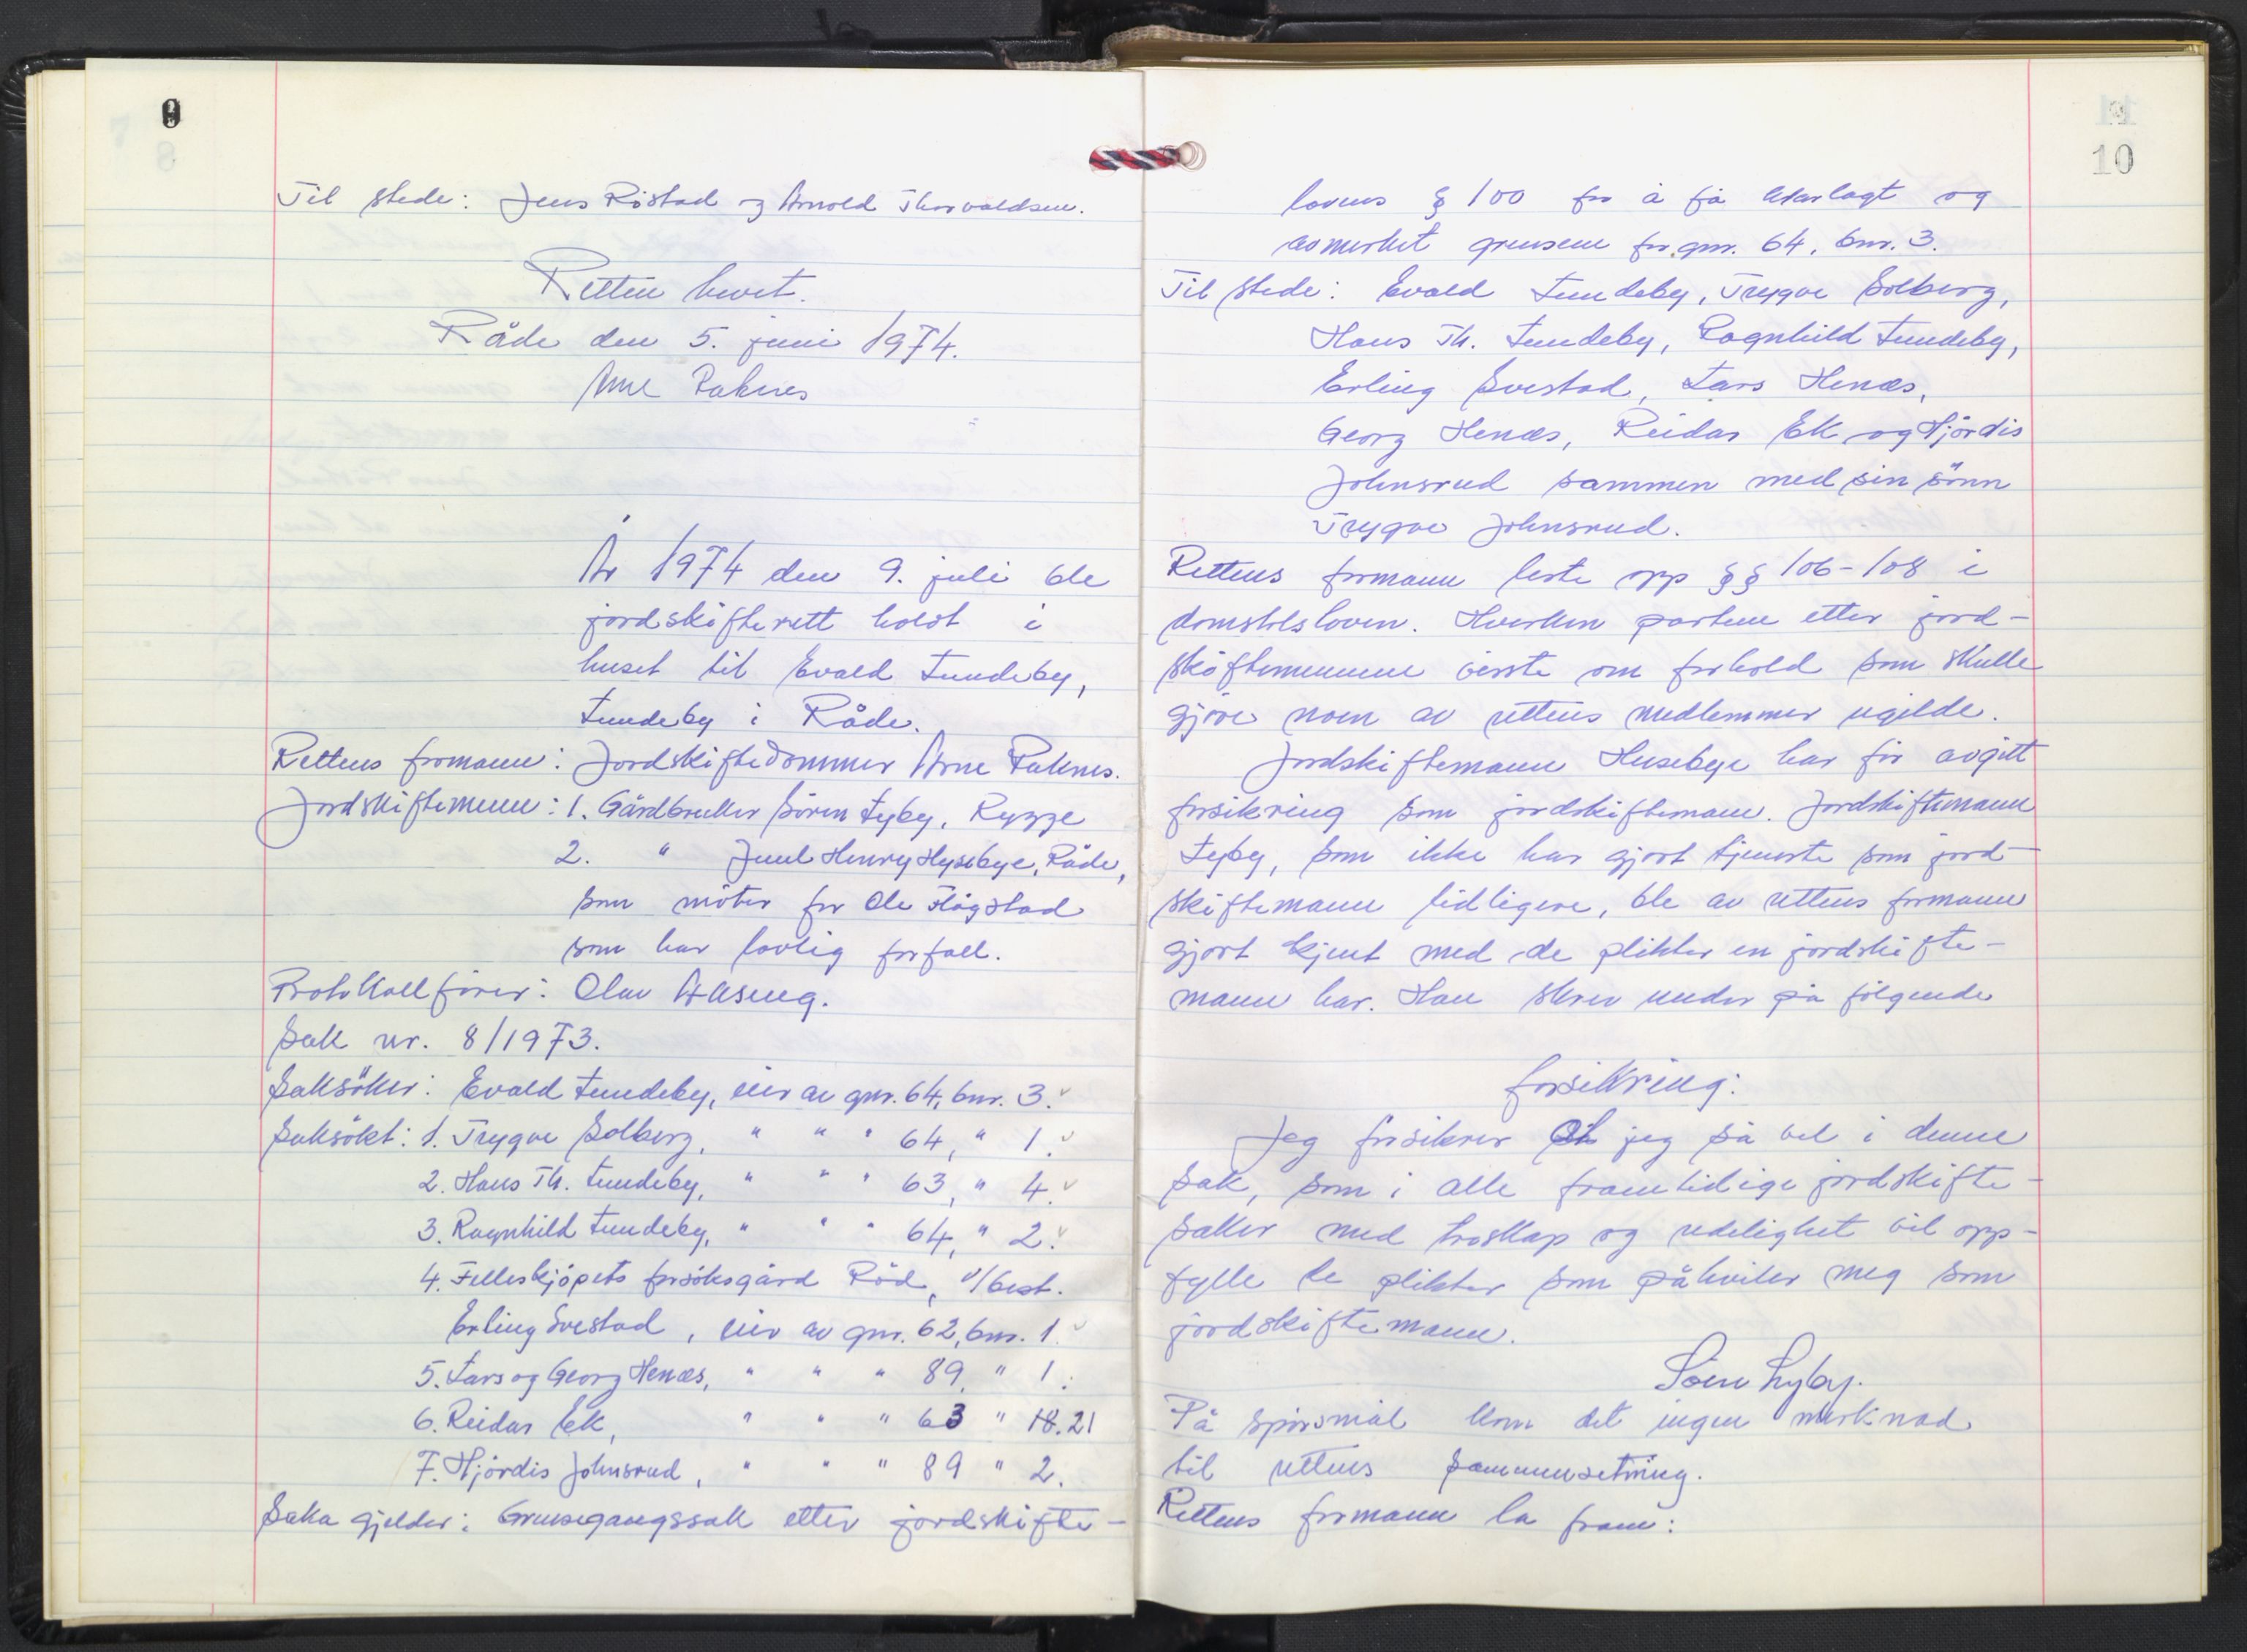 9
Til stede: Jens Röstad og Arnold Thorvaldsen.
Retten hevet.
Råde den 5. juni 1974.
Arne Raknes
År 1974 den 9. juli ble
jordskifterett holdt i
huset til Evald Lundeby,
Lundeby i Råde.
Rettens formann: Jordskiftedommer Arne Raknes.
Jordskiftemenn: 1. Gårdbruker Sören Lyby, Rygge
2. " Juul Henry Husebye, Råde,
som möter for Ole Hågstad
som har lovlig forfall.
Protokollförer: Olav Aaseng.
Sak nr. 8/1973.
Saksöker: Evald Lundeby, eier av gnr. 64, bnr. 3.
Saksökt: 1. Trygve Solberg, " " " 64, " 1.
2. Hans Th. Lundeby, " " " 63, " 4.
3. Ragnhild Lundeby, " " " 64, " 2.
4. Felleskjöpets forsöksgård Röd, v/best.
Erling Svestad, eier av gnr. 62, bnr. 1.
5. Lars og Georg Henæs, " " " 89, " 1.
6. Reidar Ek, " " " 63 " 18.21
7. Hjördis Johnsrud, " " " 89 " 2.
Saka gjelder: Grensegangssak etter jordskifte-
10
lovens § 100 for å få klarlagt og
avmerket grensene for gnr. 64, bnr. 3.
Til stede: Evald Lundeby, Trygve Solberg,
Hans Th. Lundeby, Ragnhild Lundeby,
Erling Svestad, Lars Henæs,
Georg Henæs, Reidar Ek og Hjördis
Johnsrud sammen med sin sönn
Trygve Johnsrud.
Rettens formann leste opp §§ 106-108 i
domstolsloven. Hverken partene etter jord-
skiftemennene visste om forhold som skulle
gjöre noen av rettens medlemmer ugilde.
Jordskiftemann Husebye har för avgitt
forsikring som jordskiftemann. Jordskiftemann
Lyby, som ikke har gjort tjeneste som jord-
skiftemann tidligere, ble av rettens formann
gjort kjent med de plikter en jordskifte-
mann har. Han skrev under på fölgende
forsikring:
Jeg forsikrer at jeg så vel i denne
sak, som i alle framtidige jordskifte-
saker med troskap og redelighet vil opp-
fylle de plikter som påhviler meg som
jordskiftemann.
Sören Lyby.
På spörsmål kom det ingen merknad
til rettens sammensetning.
Rettens formann la fram: